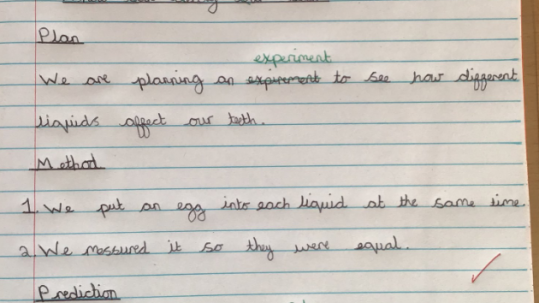 Plan
experiment
We are planning an expirement to see how different
liquids affect our teeth.
Method
1. We put an egg into each liquid at the same time.
2. We messured it so they were equal.
Prediction